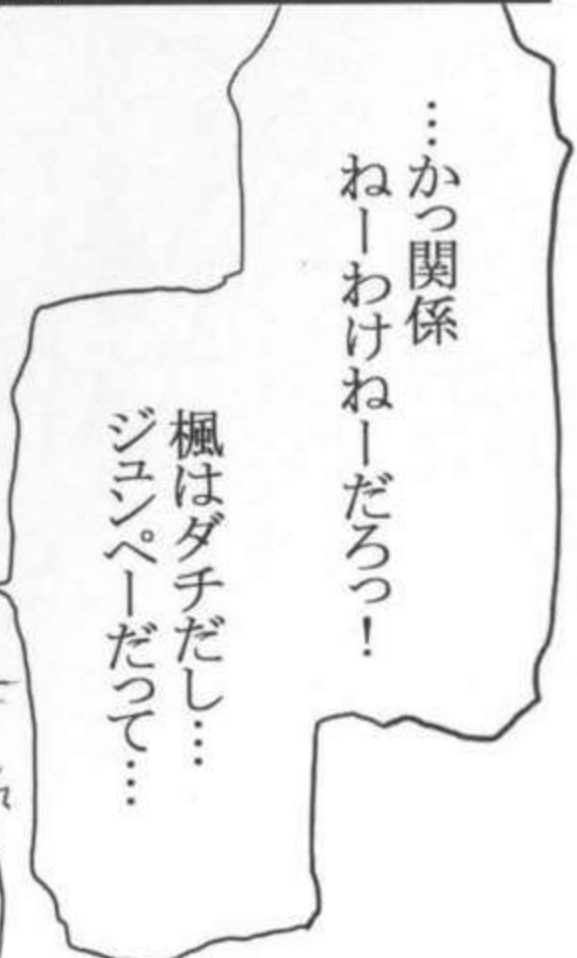 …かっ関係
ねーわけねーだろっ!
楓はダチだし…
ジュンペーだって…